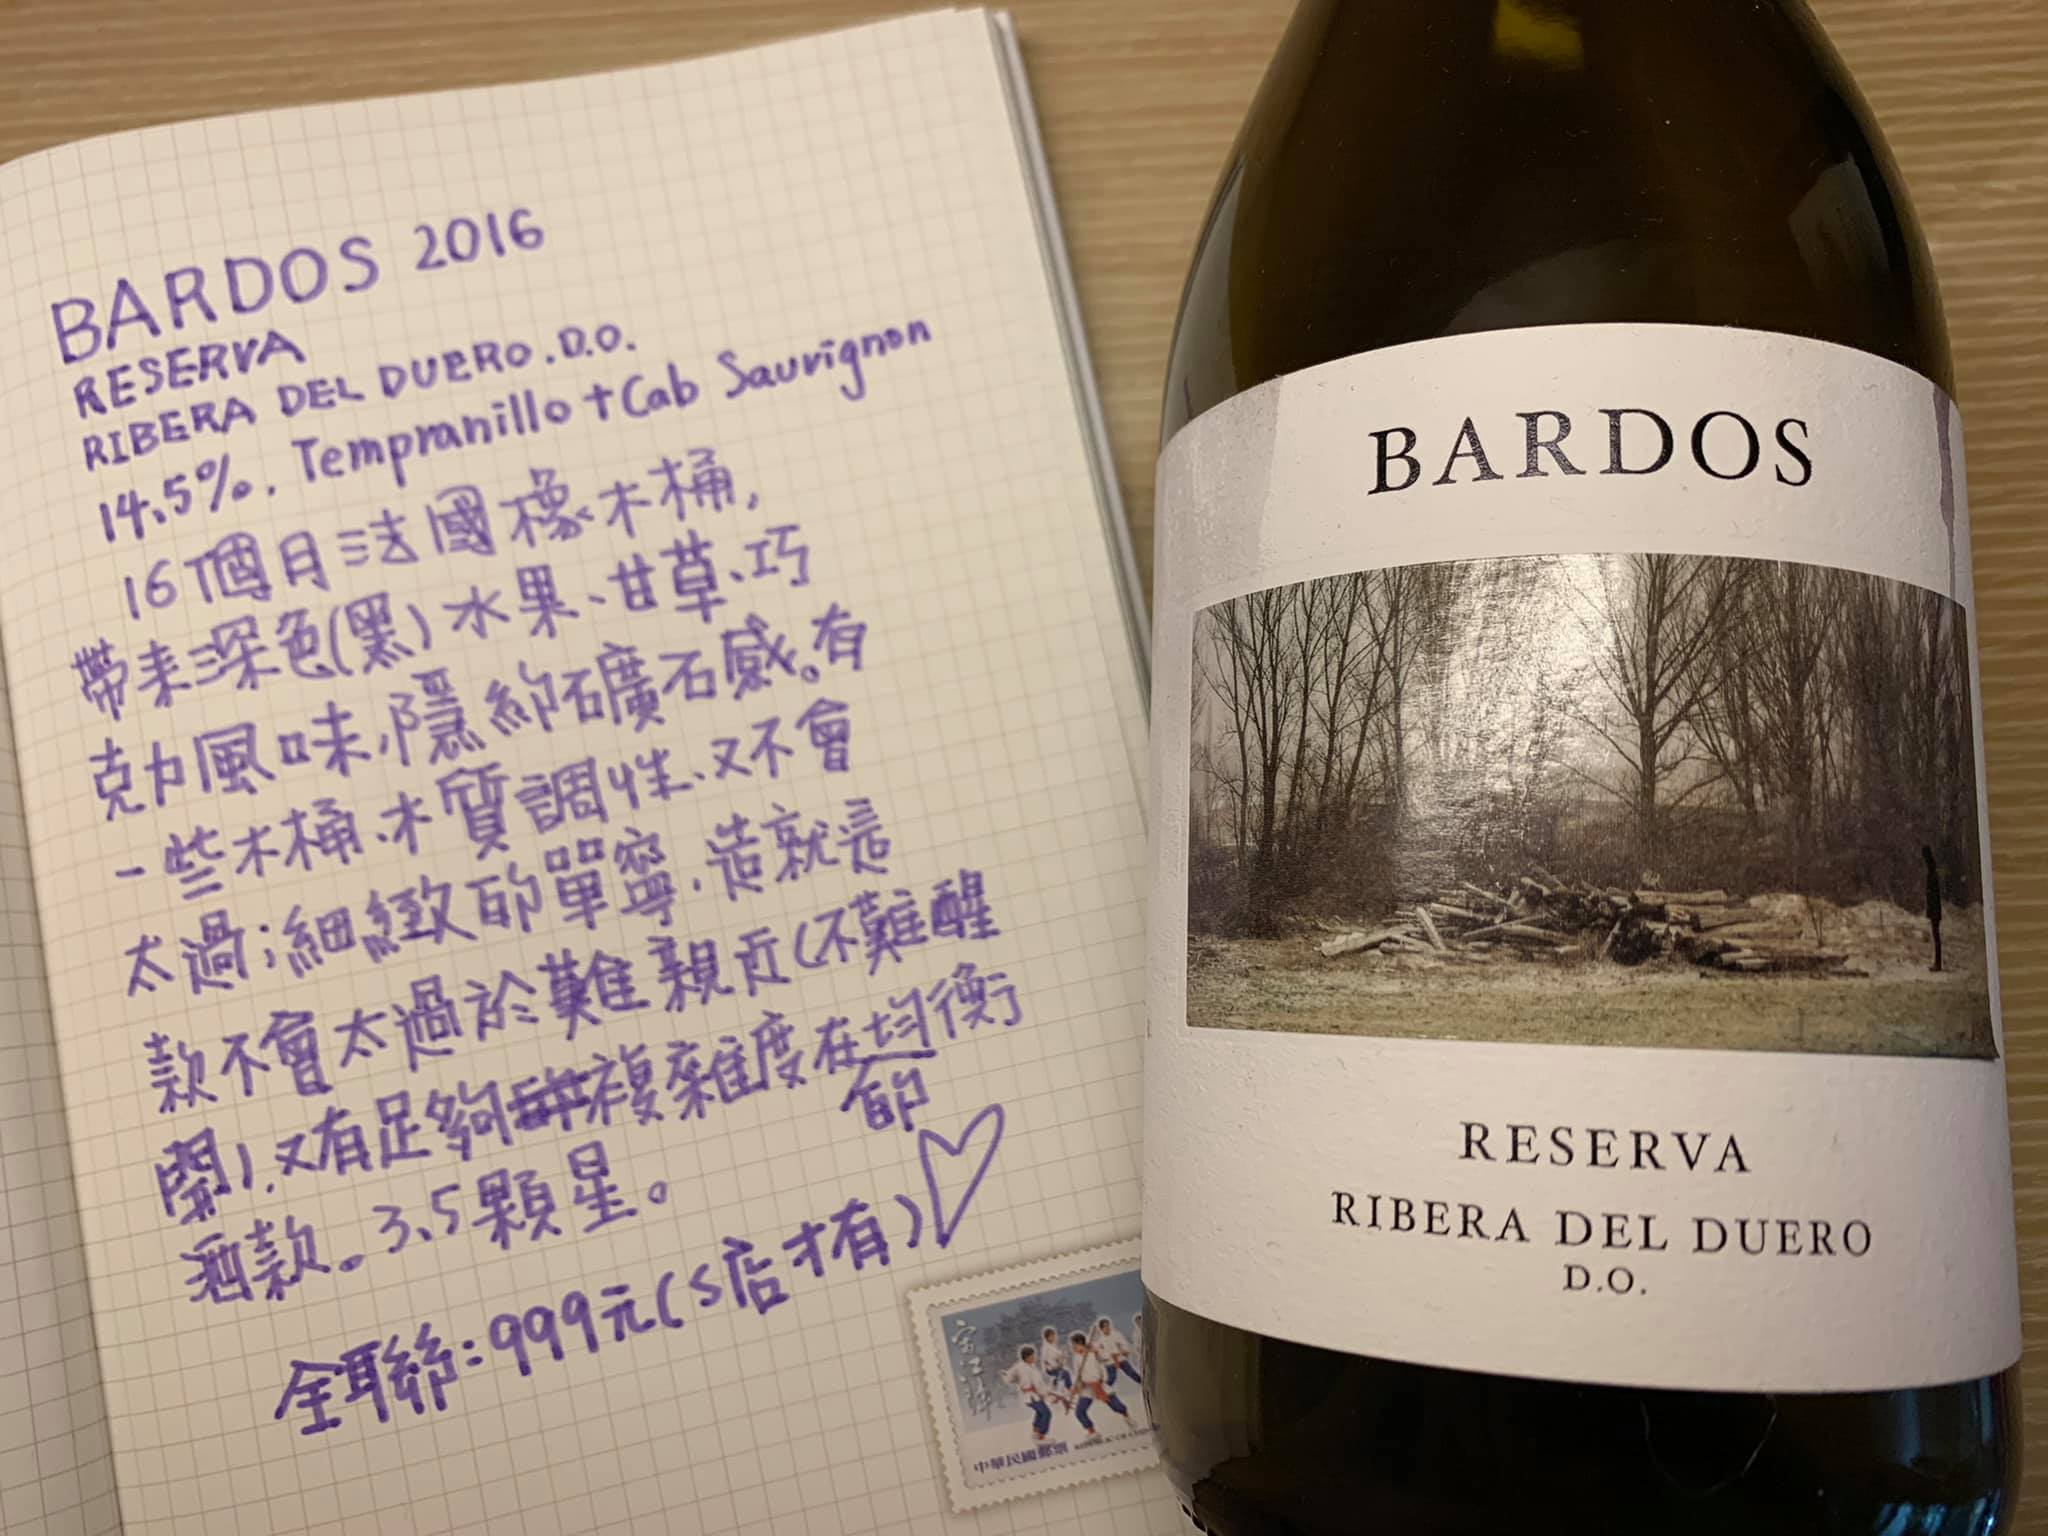 BARDOS 2016
RESERVA
RIBERA DEL DUERO.D.O.
14.5%. Tempranillo+Cab Sauvignon
16個月法國橡木桶,
帶來深色(黑)水果、甘草、巧
克力風味,隱約礦石感。有
一些木桶、木質調性、又不會
太過;細緻的單寧,造就這
款不會太過於難親近(不難醒
開),又有足夠複雜度在均衡
的
酒款。3.5顆星。
全聯:999元(S店才有)
宋江陣
中華民國郵票
BARDOS
RESERVA
RIBERA DEL DUERO
D.O.